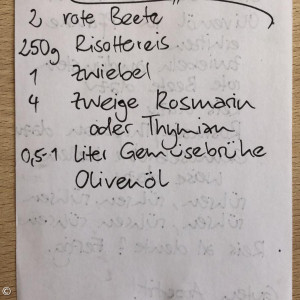 2 rote Beete
250g Risottoreis
1 Zwiebel
4 Zweige Rosmarin
oder Thymian
0,5-1 Liter Gemüsebrühe
Olivenöl